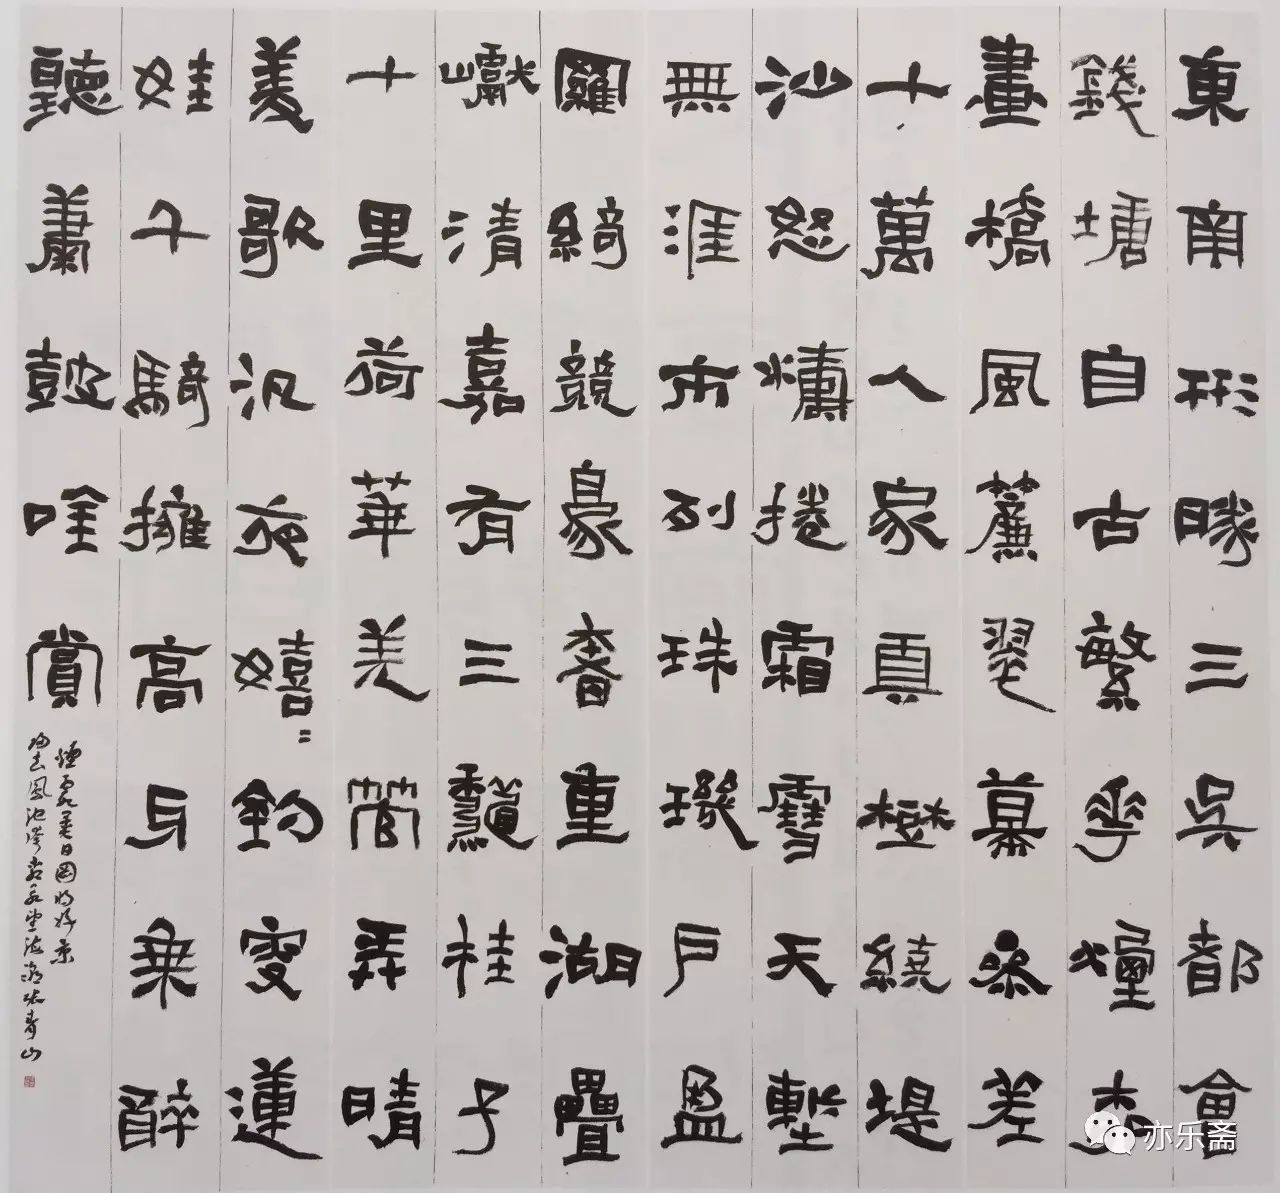 東南形勝三吳都會
錢塘自古繁華煙柳
畫橋風簾翠幕參差
十萬人家真樹繞堤
沙怒濤捲霜雪天塹
無涯市列珠璣戶盈
羅綺競豪奢重湖疊
巘清嘉有三秋桂子
十里荷華羌管弄晴
菱歌汎夜嬉〻釣叟蓮
娃千騎擁高牙乘醉
聽簫鼓吟賞
煙霞異日圖將好景
歸去鳳池誇 柳永望海潮 張青山
亦乐斋